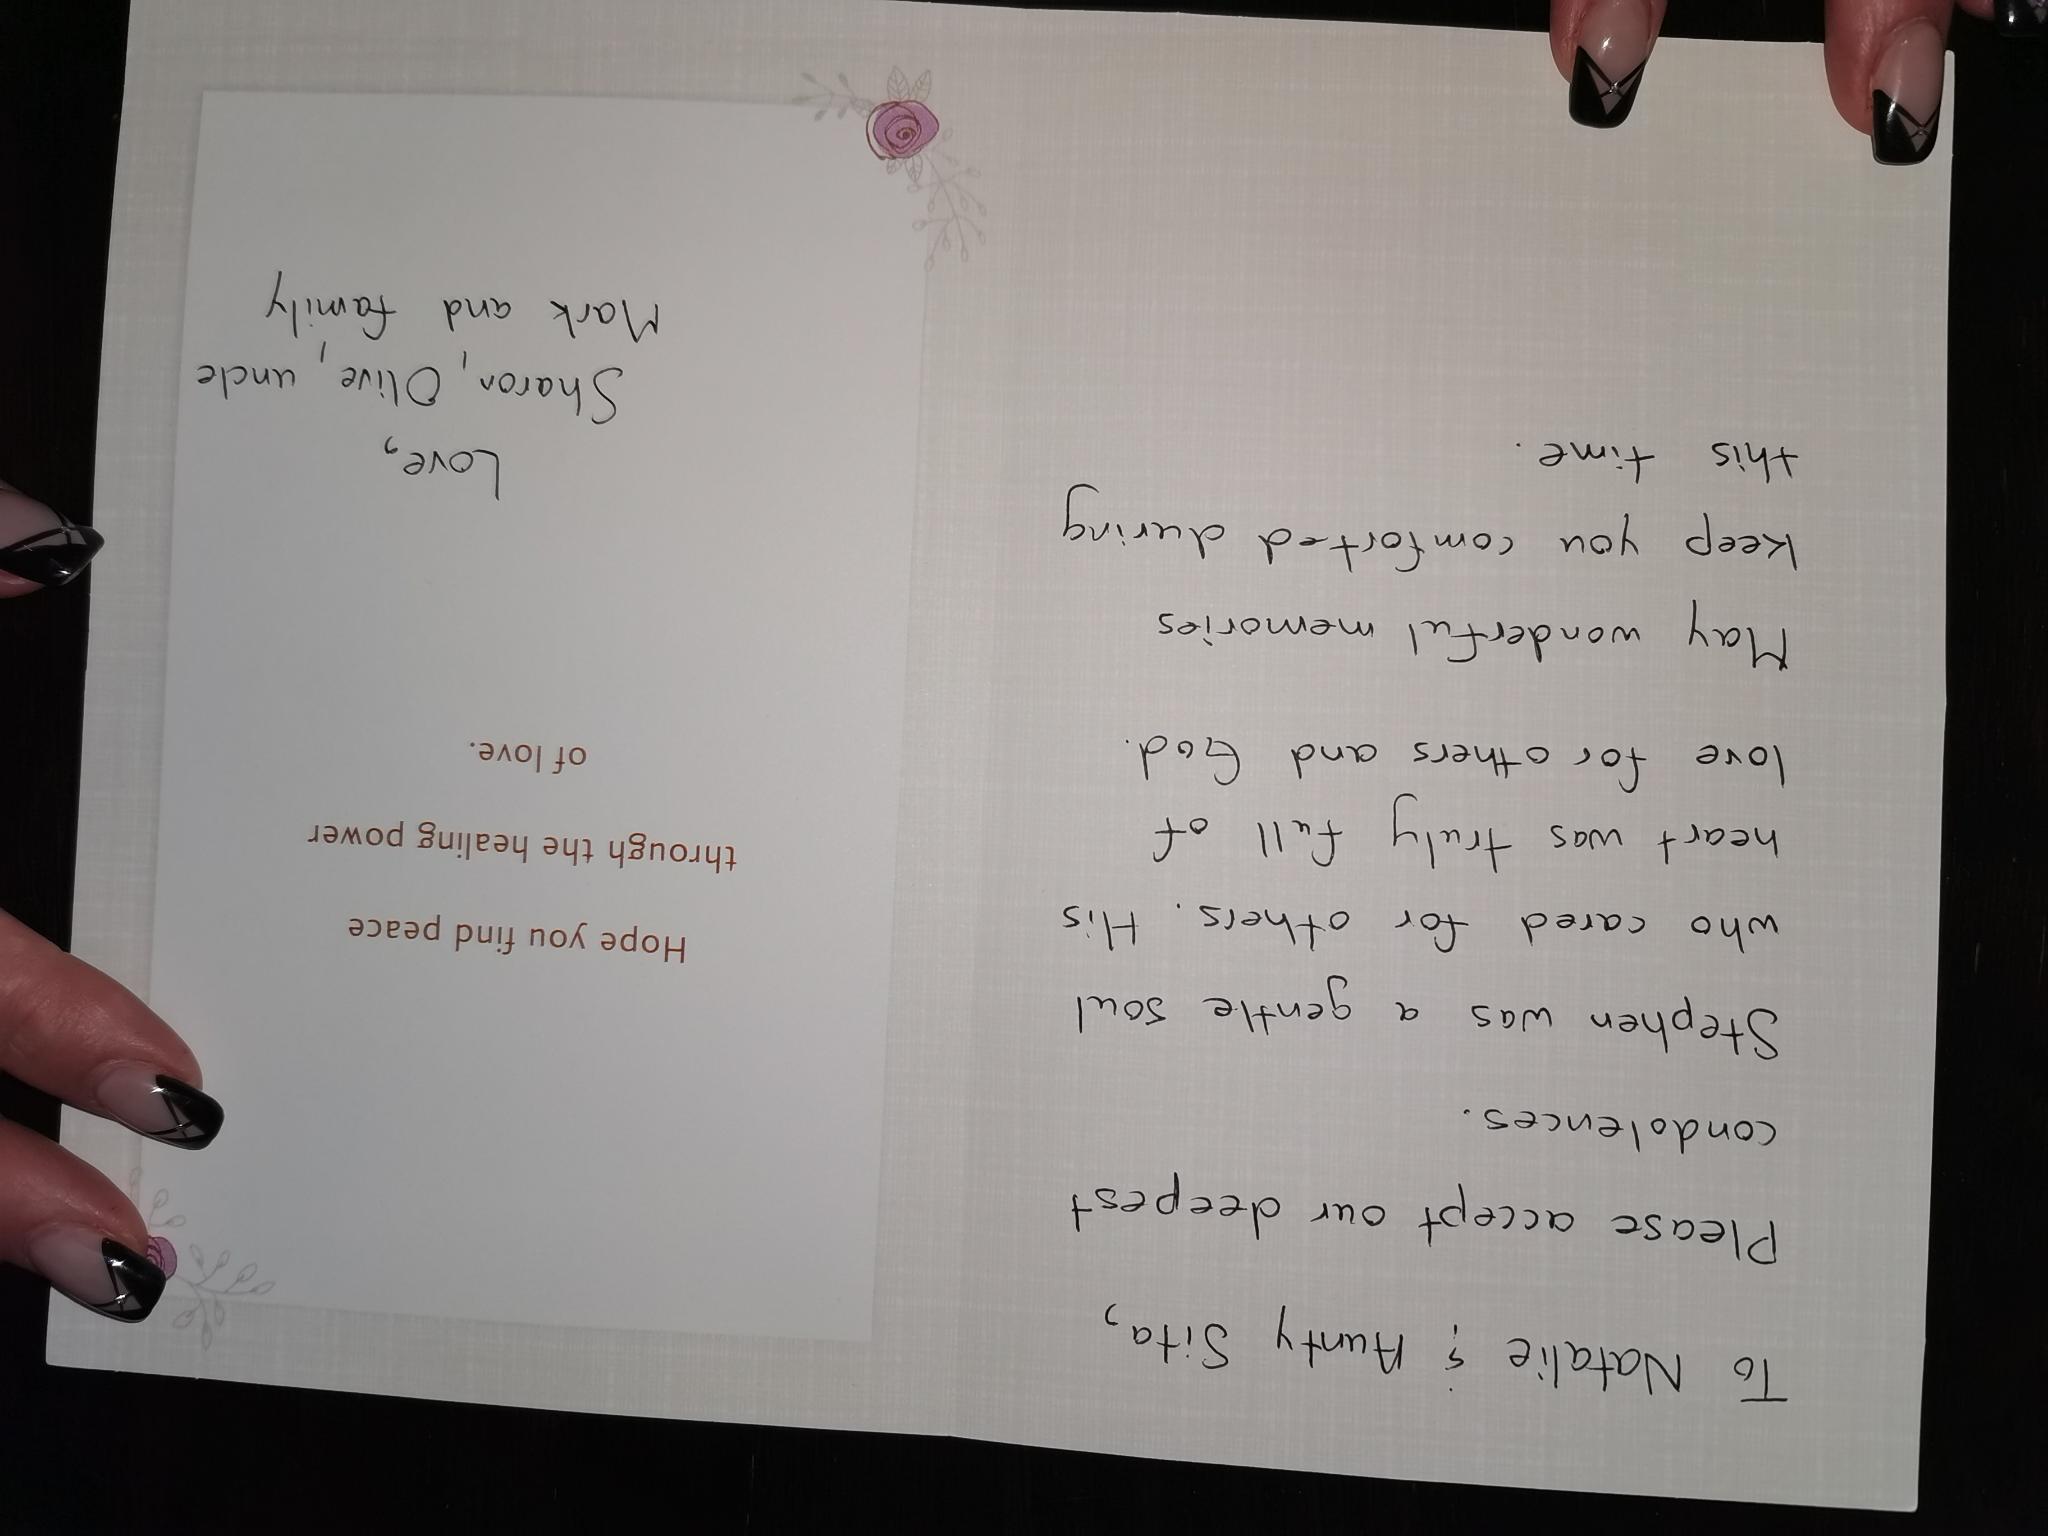 To Natalie & Aunty Sita,
Please accept our deepest
condolences.
Stephen was a gentle soul
who cared for others. His
heart was truly full of
love for others and God.
May wonderful memories
keep you comforted during
this time.
Hope you find peace
through the healing power
of love.
Love,
Sharon, Olive, uncle
Mark and family